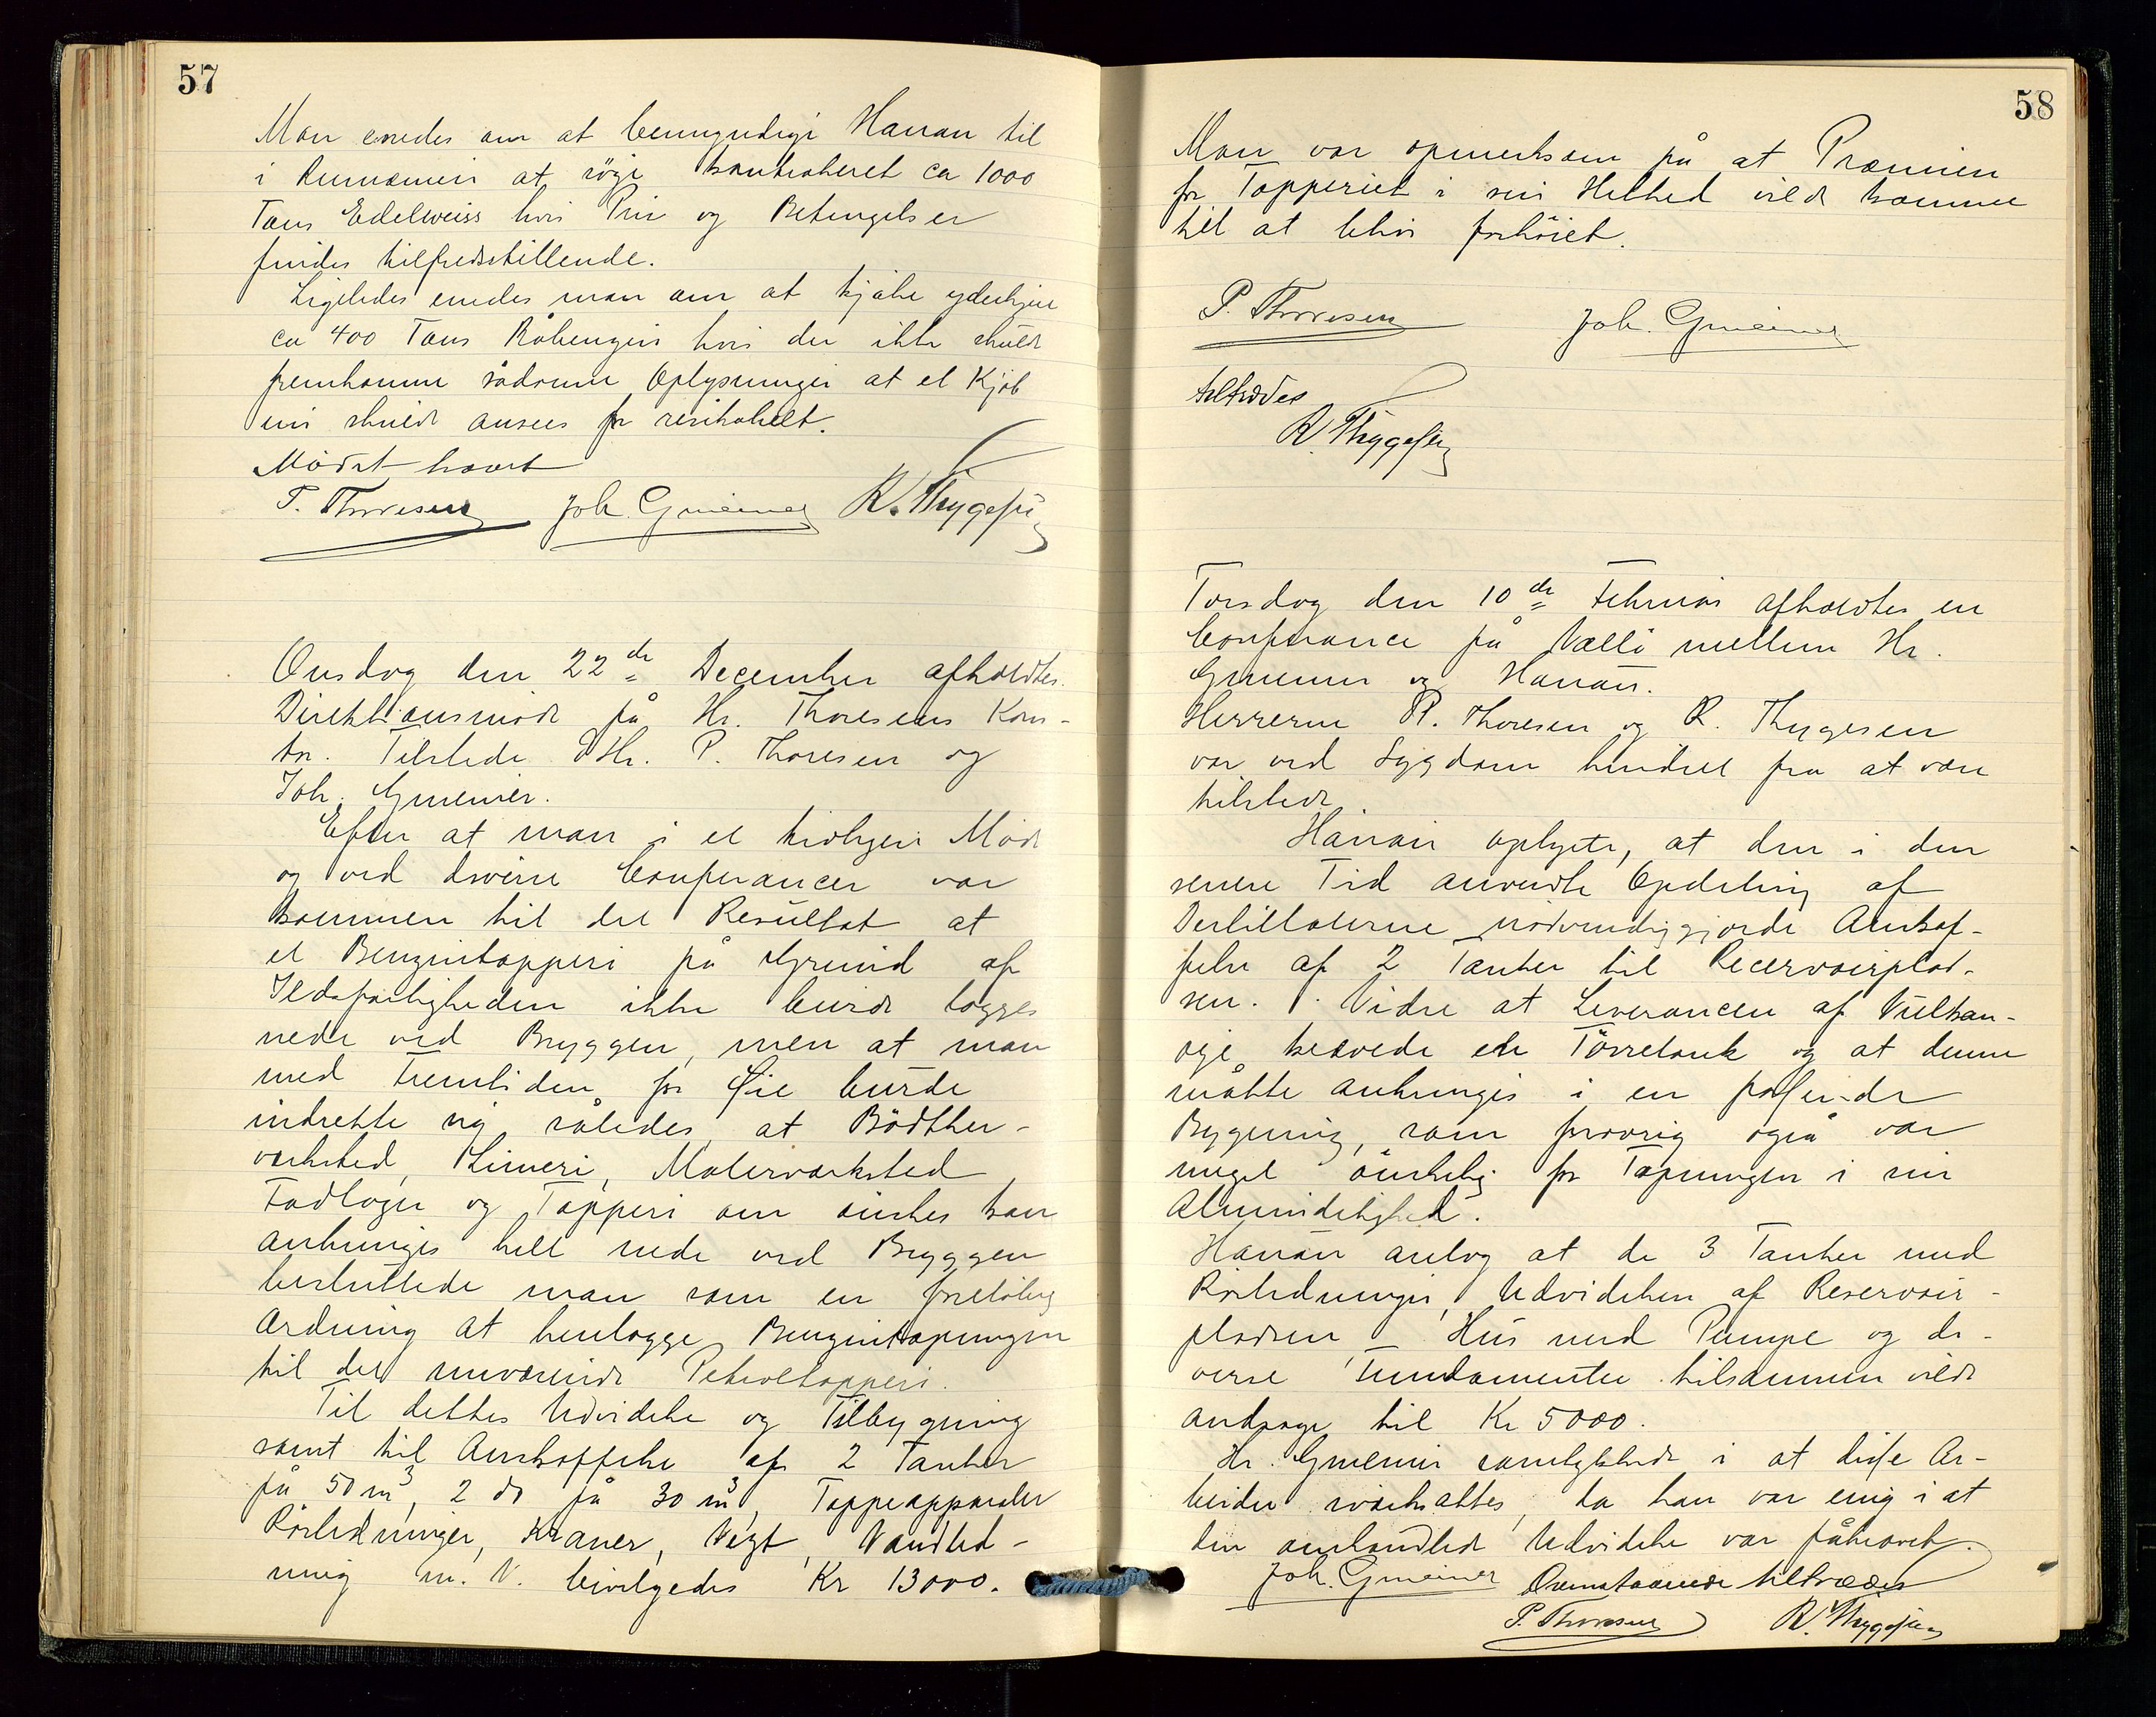 57
Man enedes om at bemyndige Hanan til
i Rumænien at söge kontraheret ca 1000
Tons Edelweiss hvis Pris og Betingelser
findes tilfredsstillende.
Ligeledes enedes man om at kjöbe yderligere
ca 400 Tons Råbenzin hvis der ikke skulde
fremkomme sådanne Oplysninger at et Kjöb
nu skulde ansees for resikabelt.
Mödet hævet
P. Thoresen Joh. Gmeiner R. Thygesen
Onsdag den 22de December afholdtes
Direktionsmöde på Hr. Thoresens Kon-
tor. Tilstede DHr. P. Thoresen og
Joh. Gmeiner.
Efter at man i et tidligere Möde
og ved diverse Conferancer var
kommen til det Resultat at
et Benzintapperi på Grund af
Ildsfarligheden ikke burde lægges
nede ved Bryggen, men at man
med Fremtiden for Öie burde
indrette sig således at Bödtker-
værksted, Limeri, Malerværksted,
Fadlager og Tapperi om önskes kan
anbringes helt nede ved Bryggen
besluttede man som en foreløbig
Ordning at henlægge Benzintapningen
til det nuværende Petroltapperi.
Til dettes Udvidelse og Tilbygning
samt til Anskaffelse af 2 Tanker
på 50 m3, 2 do på 30 m3, Tappeapparater
Rörledninger, Kraner, Vægt, Vandled-
ning m. V. bevilgedes Kr 13000.
58
Man var opmerksom på at Præmien
for Tapperiet i sin Helhed vilde komme
til at blive forhöiet.
P. Thoresen Joh. Gmeiner
tiltrædes
R. Thygesen
Torsdag den 10de Februar afholdtes en
Conferance på Vallö mellem Hr.
Gmeiner og Hanan.
Herrerne P. Thoresen og R. Thygesen
var ved Sygdom hindret fra at være
tilstede.
Hanan oplyste, at den i den
senere Tid anvendte Opdeling af
Destillaterne nödvendiggjorde Anskaf-
felse af 2 Tanker til Recervoirplad-
sen. Videre at Leverancen af Vulkan-
olje krævede en Törretank og at denne
måtte anbringes i en passende
Bygning, som forövrig også var
meget önskelig for Tapningen i sin
Almindelighed.
Hanan antog at de 3 Tanker med
Rörledninger, Udvidelsen af Reservoir-
pladsen, Hus med Pumpe og di-
verse Fundamenter tilsammen vilde
andrage til Kr 5000.
Hr. Gmeiner samtykkede i at disse Ar-
beider iværksattes, da han var enig i at
den omhandlede Udvidelse var påkrævet.
Joh. Gmeiner Ovenstaaende tiltrædes
P. Thoresen R. Thygesen